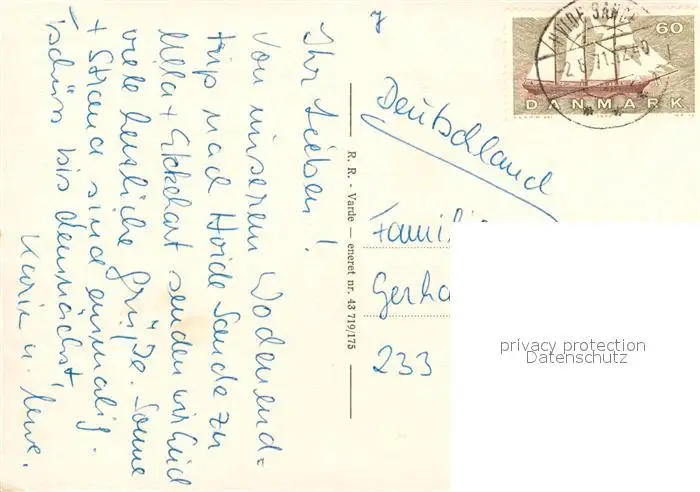 Ihr Lieben!
Von unserem Wochenend=
trip nach Hvide Sande zu
Ulla + Ekkehart senden wir Euch
viele herzliche Grüße. Sonne
+ Strand sind einmalig.
Tschüss bis demnächst,
Karin u. Uwe.
R. R. - Varde — eneret nr. 43 719/175
HVIDE SANDE
2. 6. 71. 12-
60
DANMARK
Deutschland
Famili
Gerha
233
privacy protection
Datenschutz